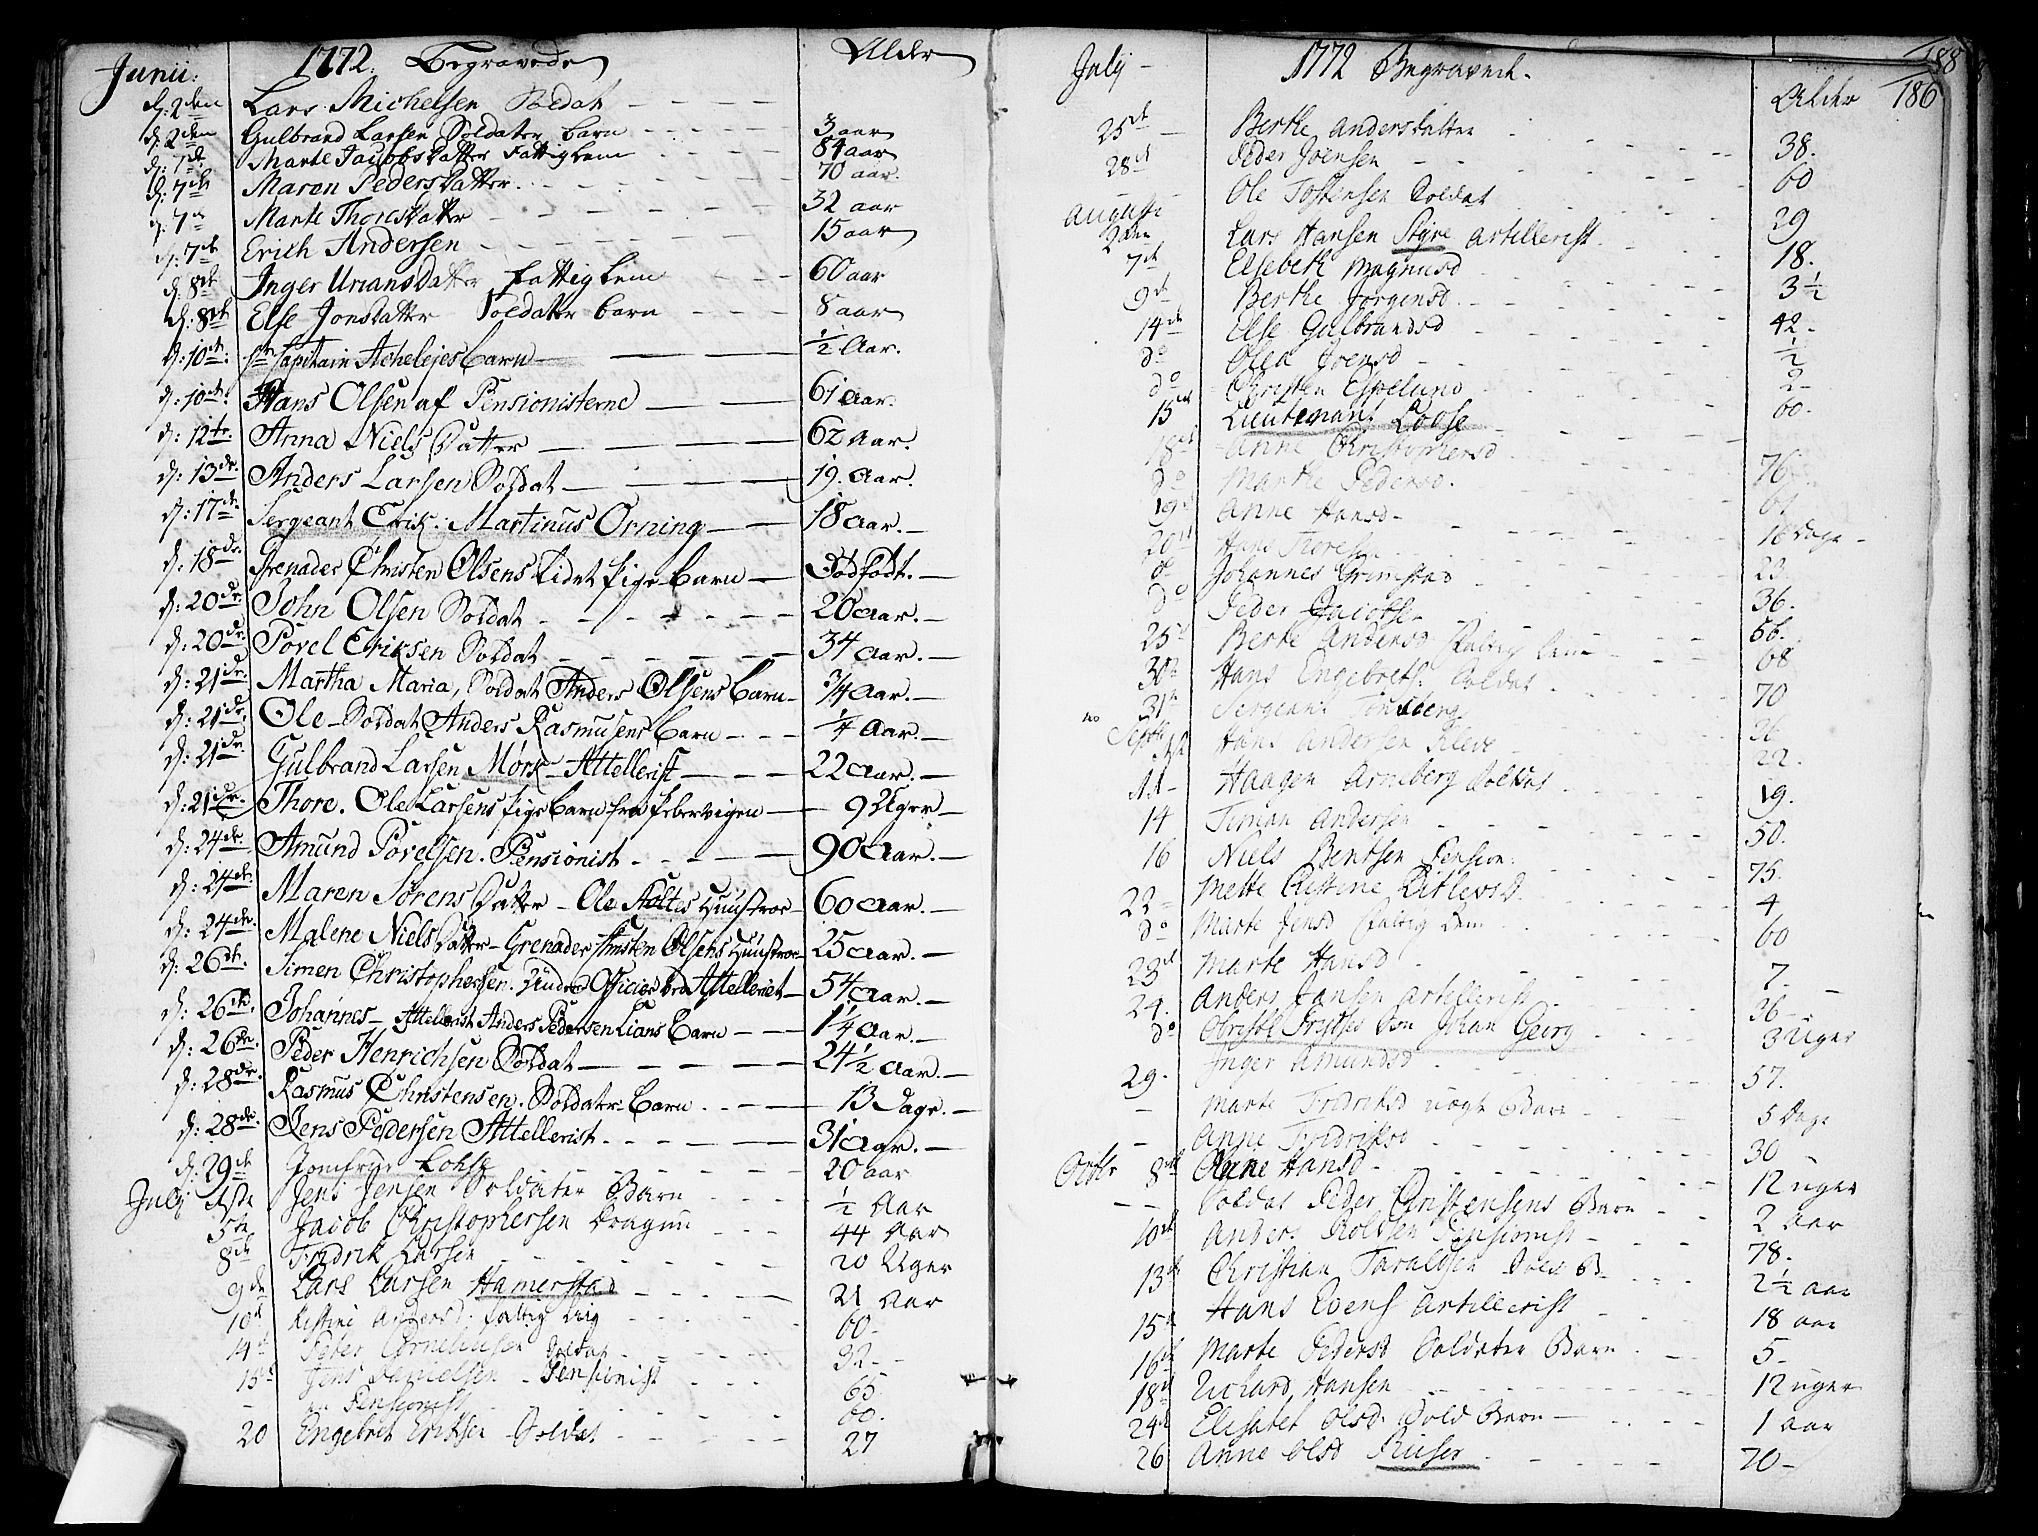 Junii: 1772. Begravede Alder
d: 2den Lars Michelsen Soldat
d: 2den Gulbrand Larsen Soldater barn 3 aar
d: 7de Marte Jacobsdatter Fattiglem 84 aar
d: 7de Maron Pedersdatter. 70 aar.
d: 7de Marte Thoresdatter 32 aar
d: 7de Erich Andersen 15 aar
d: 8de Inger Uriansdatter fattig lem 60 aar
d: 8de Else Jonsdatter Soldatter barn 8 aar
d: 10de: Hr Capitain Achelejes Barn ½ Aar.
d: 10de: Hans Olsen af Pensionisterne 61 Aar.
d: 12te. Anna Niels Datter 62 Aar.
d: 13de. Anders Larsen Soldat 19. Aar.
d: 17de. Sergeant Erik: Martinus Orning 18 Aar.
d: 18de. Grenader Christen Olsens lidet Pige Barn Dødfødt.
d: 20de. John Olsen Soldat 20 Aar.
d: 20de. Povel Eriksen Soldat 34 Aar.
d: 21de. Martha Maria, Soldat Anders Olsens Barn ¾ Aar.
d: 21de. Ole Soldat Anders Rasmusens Barn ¼ Aar.
d: 21de. Gulbrand Larsen Mørk Attellerist 22 Aar.
d: 21de. Thore. Ole Larsens pige Barn fra Pebervigen 9 Uger
d: 24de. Amund Povelsen. Pensionist 90 Aar.
d: 24de. Maren Sørens Datter - Ole Holtes Huustroe 60 Aar.
d: 24de. Malene Niels Datter - Grenader Christen Olsens Huustroe 25 Aar.
d: 26de. Simen Christophersen. Under Officier ved Attelleriet 54 Aar.
d: 26de. Johannes - Attellerist Anders Pedersen Lians Barn 1¼ Aar.
d: 26de. Peder Henrichsen Soldat 24½ Aar.
d: 28de. Rasmus Christensen. Soldater Barn 13 Dage.
d: 28de. Jens Pedersen Attellerist. 31 Aar.
d: 29de Jomfrue Lohse 20 aar
July 1ste Jens Jensen Soldater Barn ½ Aar
5te Jacob Christophersen Dragun 44 Aar
8de Fridrik Larsen 20 Uger
9de Lars Larsen Hamerstad 21 Aar
10de Kistine Andersd: fattig 60
14de Peter Cornelinsen Soldat 32
15de Jens Danielsen Pensionist 65
en Pensionist 60.
20 Engebret Eriksen Soldat 27
188
July 1772 Begravede. Alder 186
25de Berthe Andersdatter 38.
28de Peder Joensen 60
Ole Tostensen Soldat 29
Augusti
2den Lars Hansen Styre Artillerist 18.
7de Elsebeth Magnusd 3½
9de Berthe Jørgensd 42
14de Else Gulbrandsd ½
do Olea Joensd 2
do Christen Espelund 60.
15de Lieutenant Loose
18de Anne Christophersd 76
do Marthe Pedersd. 61
19de Anne Hansd 16 Dage
20de Hans Thoresen 23
do Johannes Grimstad 36.
do Peder Jacobse 66.
25de Berte Andersd Fattig lem 68
30te Hans Engebrets: Soldat 70
31te Sergeant Tonsberg 36
Septbr Hans Andersen Kleve 22.
11 Haagen Arneberg Soldat 19.
14 Simon Andersen 50.
16 Niels Bentsen Pension: 75.
22 Mette Cistine Ditlevsd 4
do Marte Jensd fattig Lem 60
23de Marte Hansd 7.
24. Anders Jansen Artillerist 36
do Obristl Fritses Søn Johan Georg 3 Uger
29. Inger Amundsd 57.
Marte Fridriksd uægte Barn 5 Dage
Anne Fridriksd 30
Octbr 8de Anne Hansd 12 uger
Soldat Peder Christensens Barn 2 aar
10de Anders Rolfsen Pensionist 78.
13de Christian Taraldsen Sold B 2½ aar
15de Hans Evens Artillerist 18 aar
16de Marte Pedersd Soldater Barn 5
18de Richard Hansen 12 uger
24de Elisabet Olsd. Sold Barn 1 aar
26 Anne Olsd Riiser 70